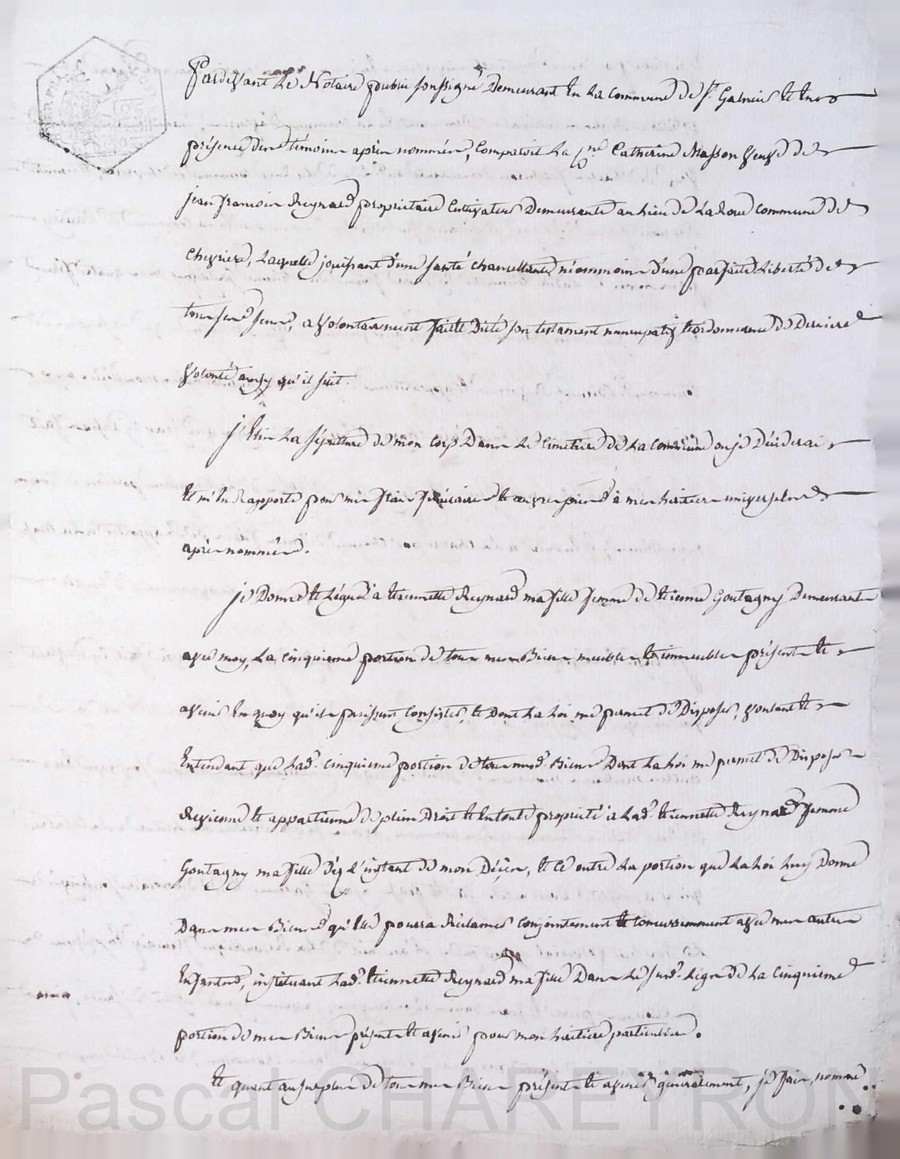 Pardevant Le Notaire public soussigné Demeurant En La Commune de St. Galmier Et En
présence des témoins après nommés, Comparoit La dne. Catherine Masson Veuve de
jean francois Reynard propriétaire Cultivateur Demeurante au Lieu de La Roue Commune de
Chevrière, Laquelle jouissant d'une santé Chancellante néommoins d'une parfaite Liberté de
tous ses sens, a Volontairement fait Et Dicté son testament nuncupatif Et ordonnance de Derniere
Volonté ainsy qu'il suit.
j'Elis La sépulture de mon Corps Dans Le Cimetière de La Commune ou je Déciderai
Et m'En Rapporte pour mes frais funéraires Et œuvres pies à mes héritiers universels
après nommés.
je Donne Et Lègue à Etiennette Reynard ma fille femme de Etienne Goutagny Demeurante
avec moy, La Cinquieme portion de tous mes Biens meubles Et immeubles présents Et
avenir En quoy qu'ils puissent Consister Et Dont La Loi me permet de Disposer, Voulant Et
Entendant que Lad. Cinquieme portion de tous mesd. Biens Dont La Loi me permet de Disposer
Revienne Et appartienne de plein Droit Et En toute propriété à Lad. Etiennette Reynard femme
Goutagny ma fille Dez L'instant de mon Décès, Et Ce outre La portion que La Loi Luy Donne
Dans mes Biens Et qu'Elle pourra Réclamer Conjointement Et Concurremment avec mes autres
Enfants, instituant Lad. Etiennette Reynard ma fille Dans Le susd. Legs de La Cinquieme
portion de mes Biens présents Et avenir pour mon héritière particulière.
Et quant au surplus de tous mes Biens présents Et avenir généralement, je fais, nomme
Pascal CHAREYRON